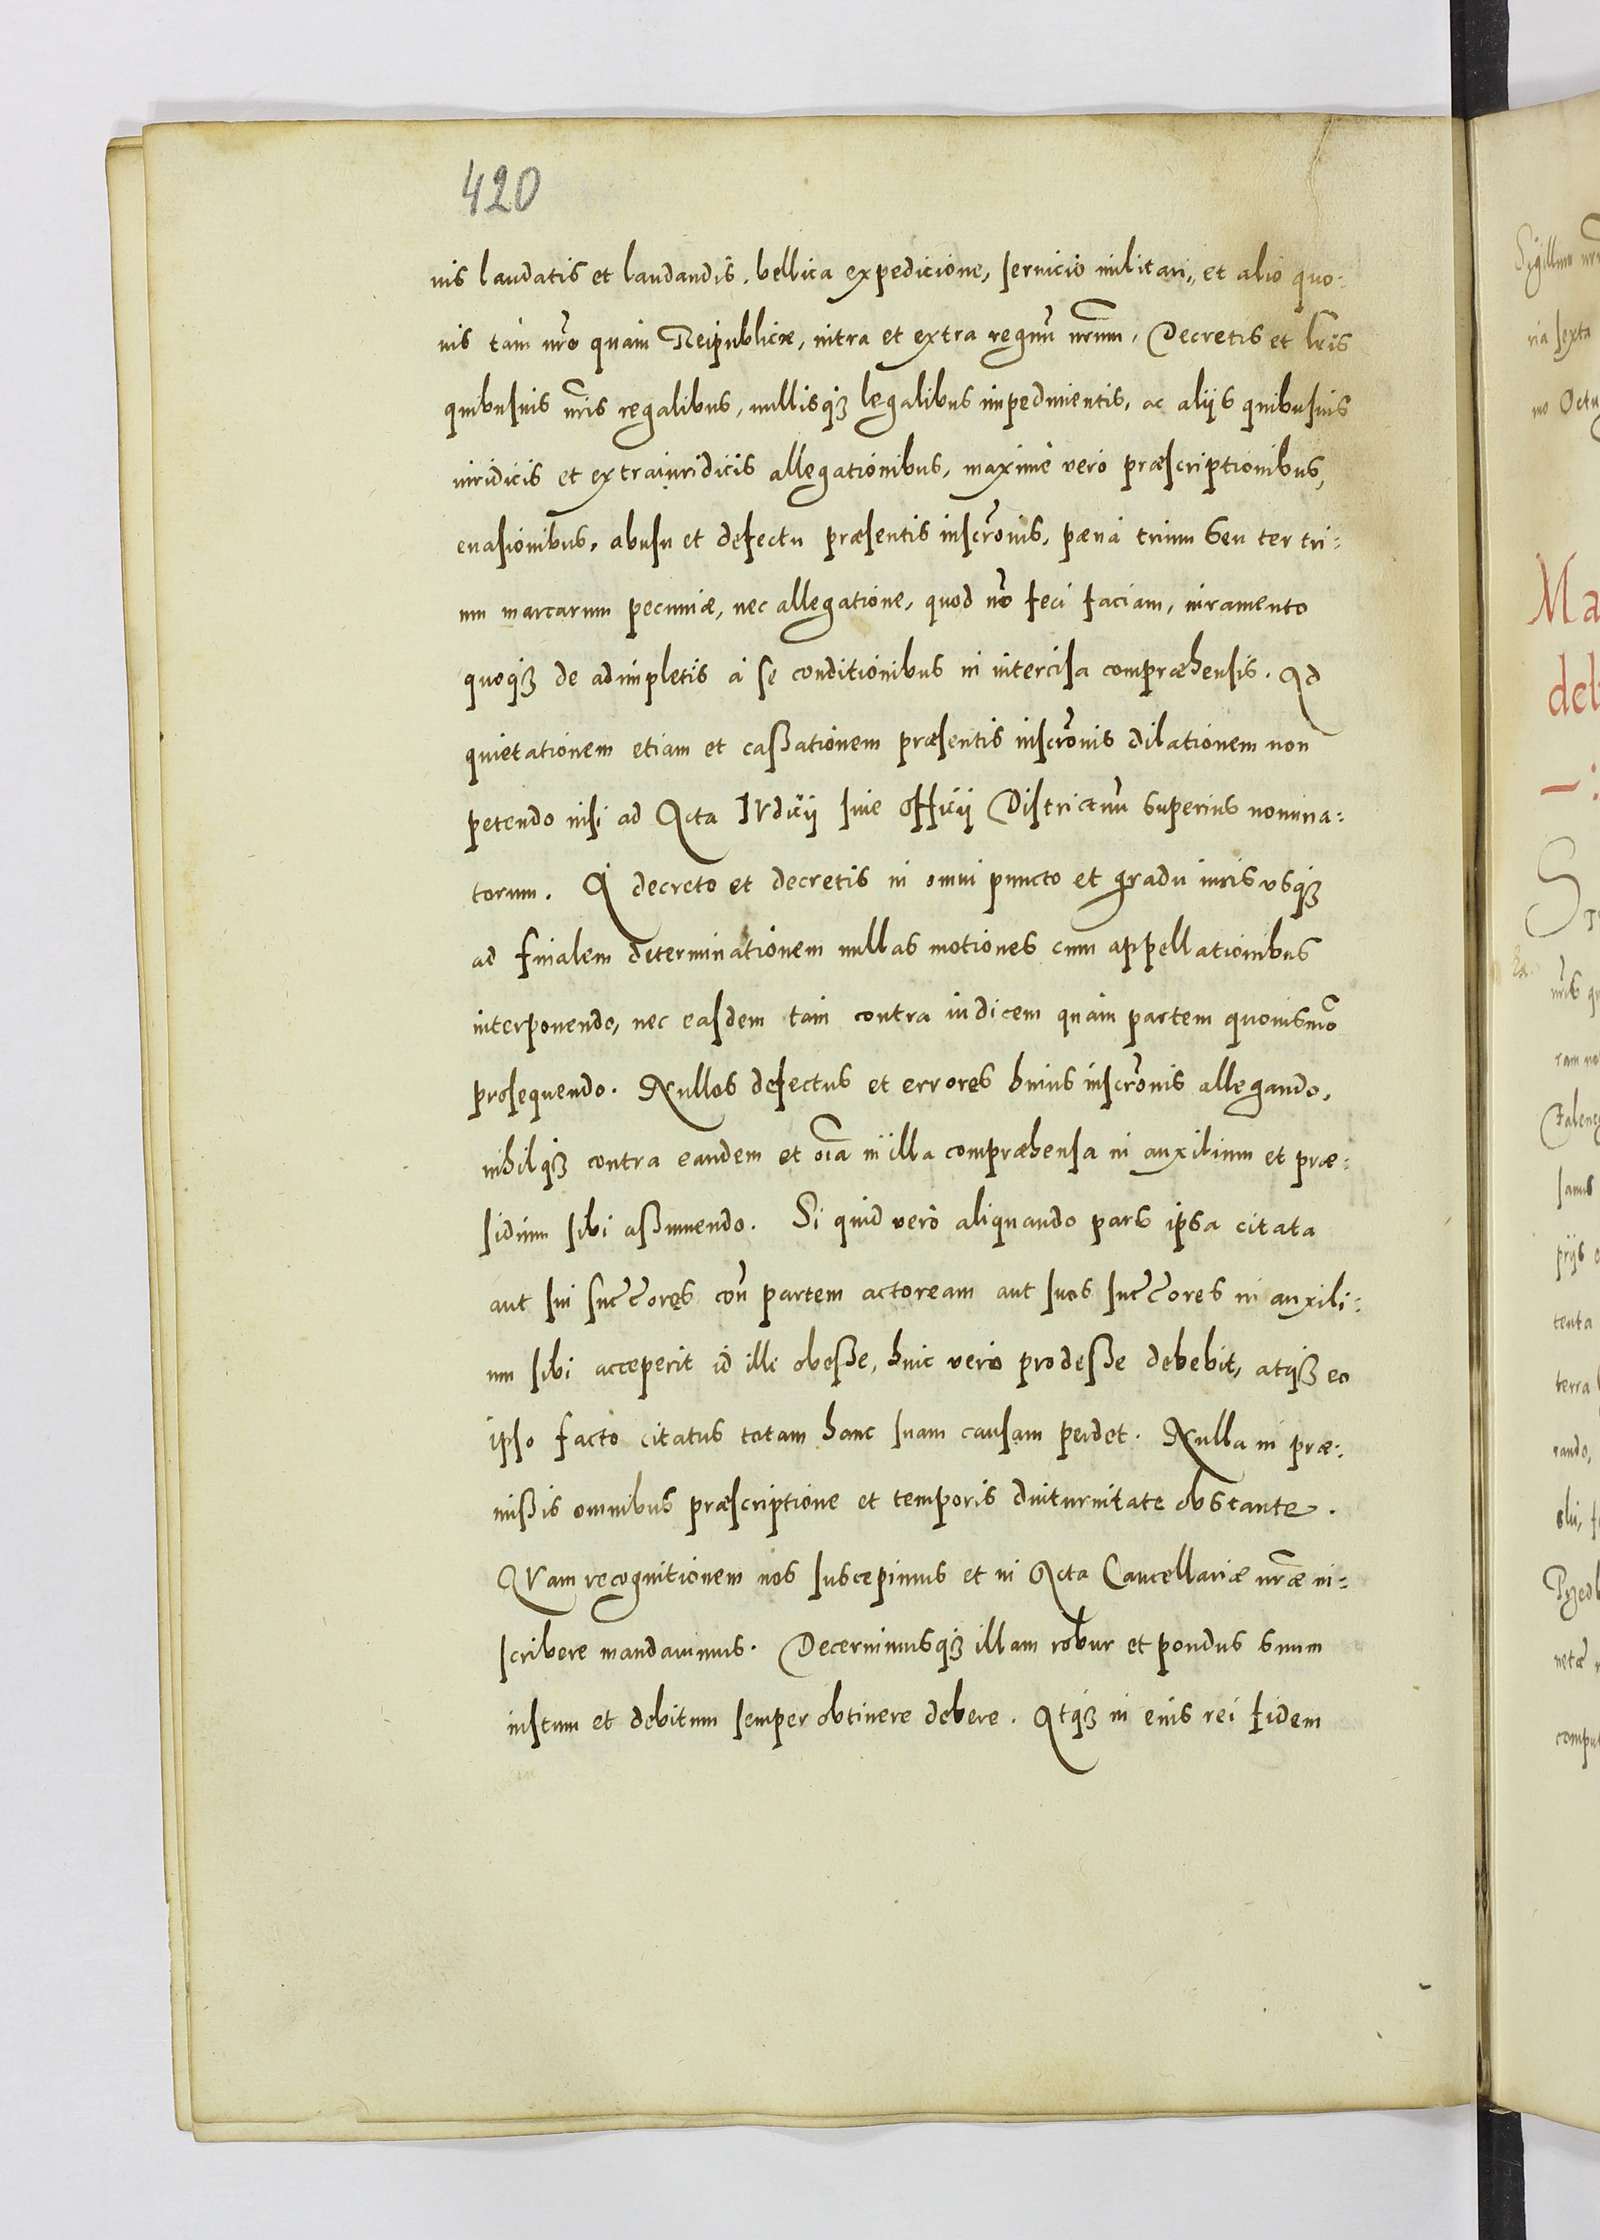 420
uis laudatis et laudandis, bellica expedicione, seruicio militari, et alio quo-
uis tam nr̃o quam Reipublicæ, intra et extra regnũ nr̃um, Decretis et lr̃is
quibusuis nr̃is regalibus, nullisq3 legalibus impedimentis, ac alijs quibusuis
iuridicis et extraiuridicis allegationibus, maxime vero præscriptionibus,
euasionibus, abusu et defectu præsentis inscrõnis, pæna trium seu ter tri=
um marcarum pecuniæ, nec allegatione, quod nõ feci faciam, iuramento
quoq3 de adimpletis à se conditionibus in intercisa compræhensis. Ad
quietationem etiam et caßationem præsentis inscrõnis dilationem non
petendo nisi ad Acta IVdicij siue officij Districtuũ superius nomina=
torum. A decreto et decretis in omni puncto et gradu iuris vsq3
ad finalem determinationem nullas motiones cum appellationibus
interponendo, nec easdem tam contra iudicem quam partem quouismõ
prosequendo. Nullos defectus et errores huius inscrõnis allegando,
nihilq3 contra eandem et oĩa in illa compræhensa in auxilium et præ=
sidium sibi aßumendo. Si quid verò aliquando pars ipsa citata
aut sui succ̃ores coñ partem actoream aut suos succ̃ores in auxili=
um sibi acceperit id illi obeße, huic vero prodeße debebit, atq3 eo
ipso facto citatus totam hanc suam causam perdet. Nulla in præ=
mißis omnibus præscriptione et temporis diuturnitate obstante.
QVam recognitionem nos suscepimus et in Acta Cancellariæ nr̃æ in=
scribere mandauimus. Decernimusq3 illam robur et pondus suum
iustum et debitum semper obtinere debere. Atq3 in eius rei fidem
Sigillum
ria sexta
Ma
deb